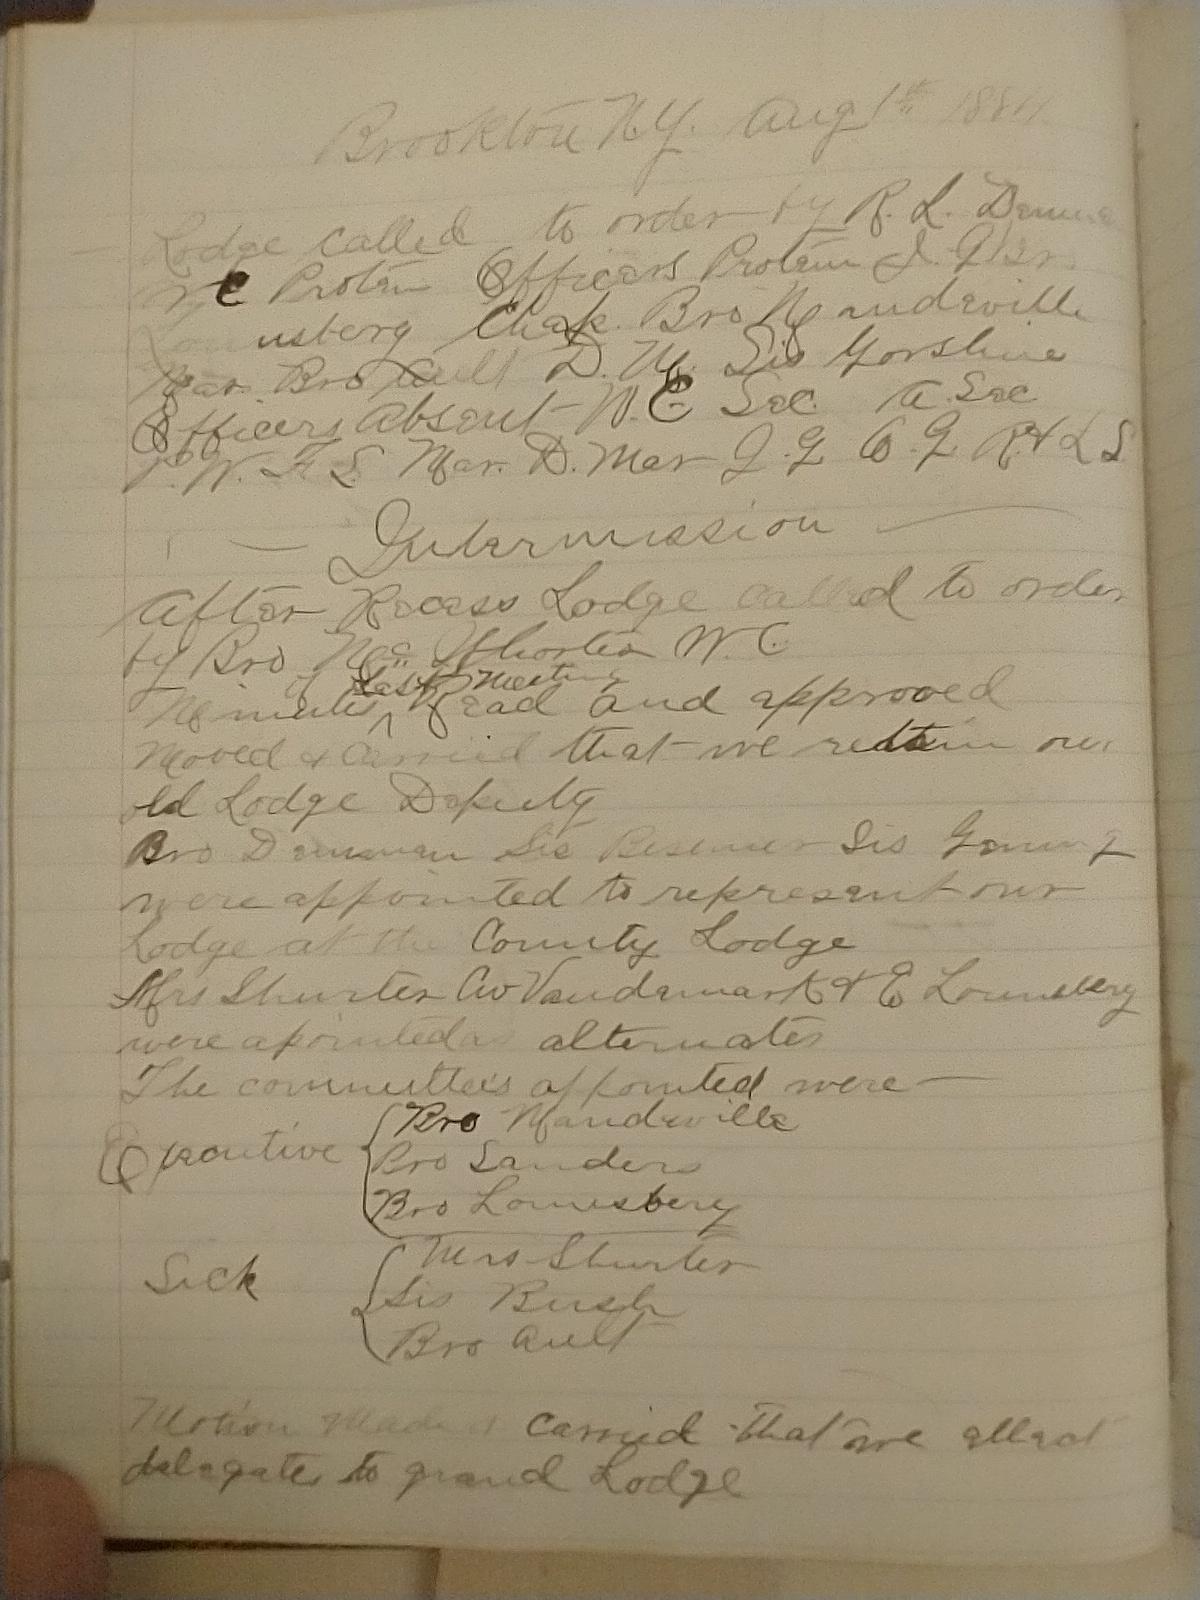 Brookton N.Y. Aug 1st 188
Lodge called to order by R. L.
W C Protem Officers Protem J. G.
usberg Chap. Bro Mandeville
Mar. Bro Ault D. M. Sis
Officers Absent W. C Sec. A. Sec
P. W. F. S. Mar. D. Mar J. G O. G R. & L S
Intermission
After Recess Lodge called to order
by Bro W. C.
of Last Meeting
Minutes ^ Read and approved
Moved & Carried that we retain our
old Lodge Deputy
Bro Denman Sis Besemer Sis
were appointed to represent our
Lodge at the County Lodge
Mrs Shurter Vandemark & E Lounsbery
were apointed as alternates
The committees appointed were
Executive { Bro Mandeville
Bro Sanders
Bro Lounsbery
Sick { Mrs Shurter
Sis Bush
Bro Ault
Motion Made & carried that we ellect
delegates to grand Lodge